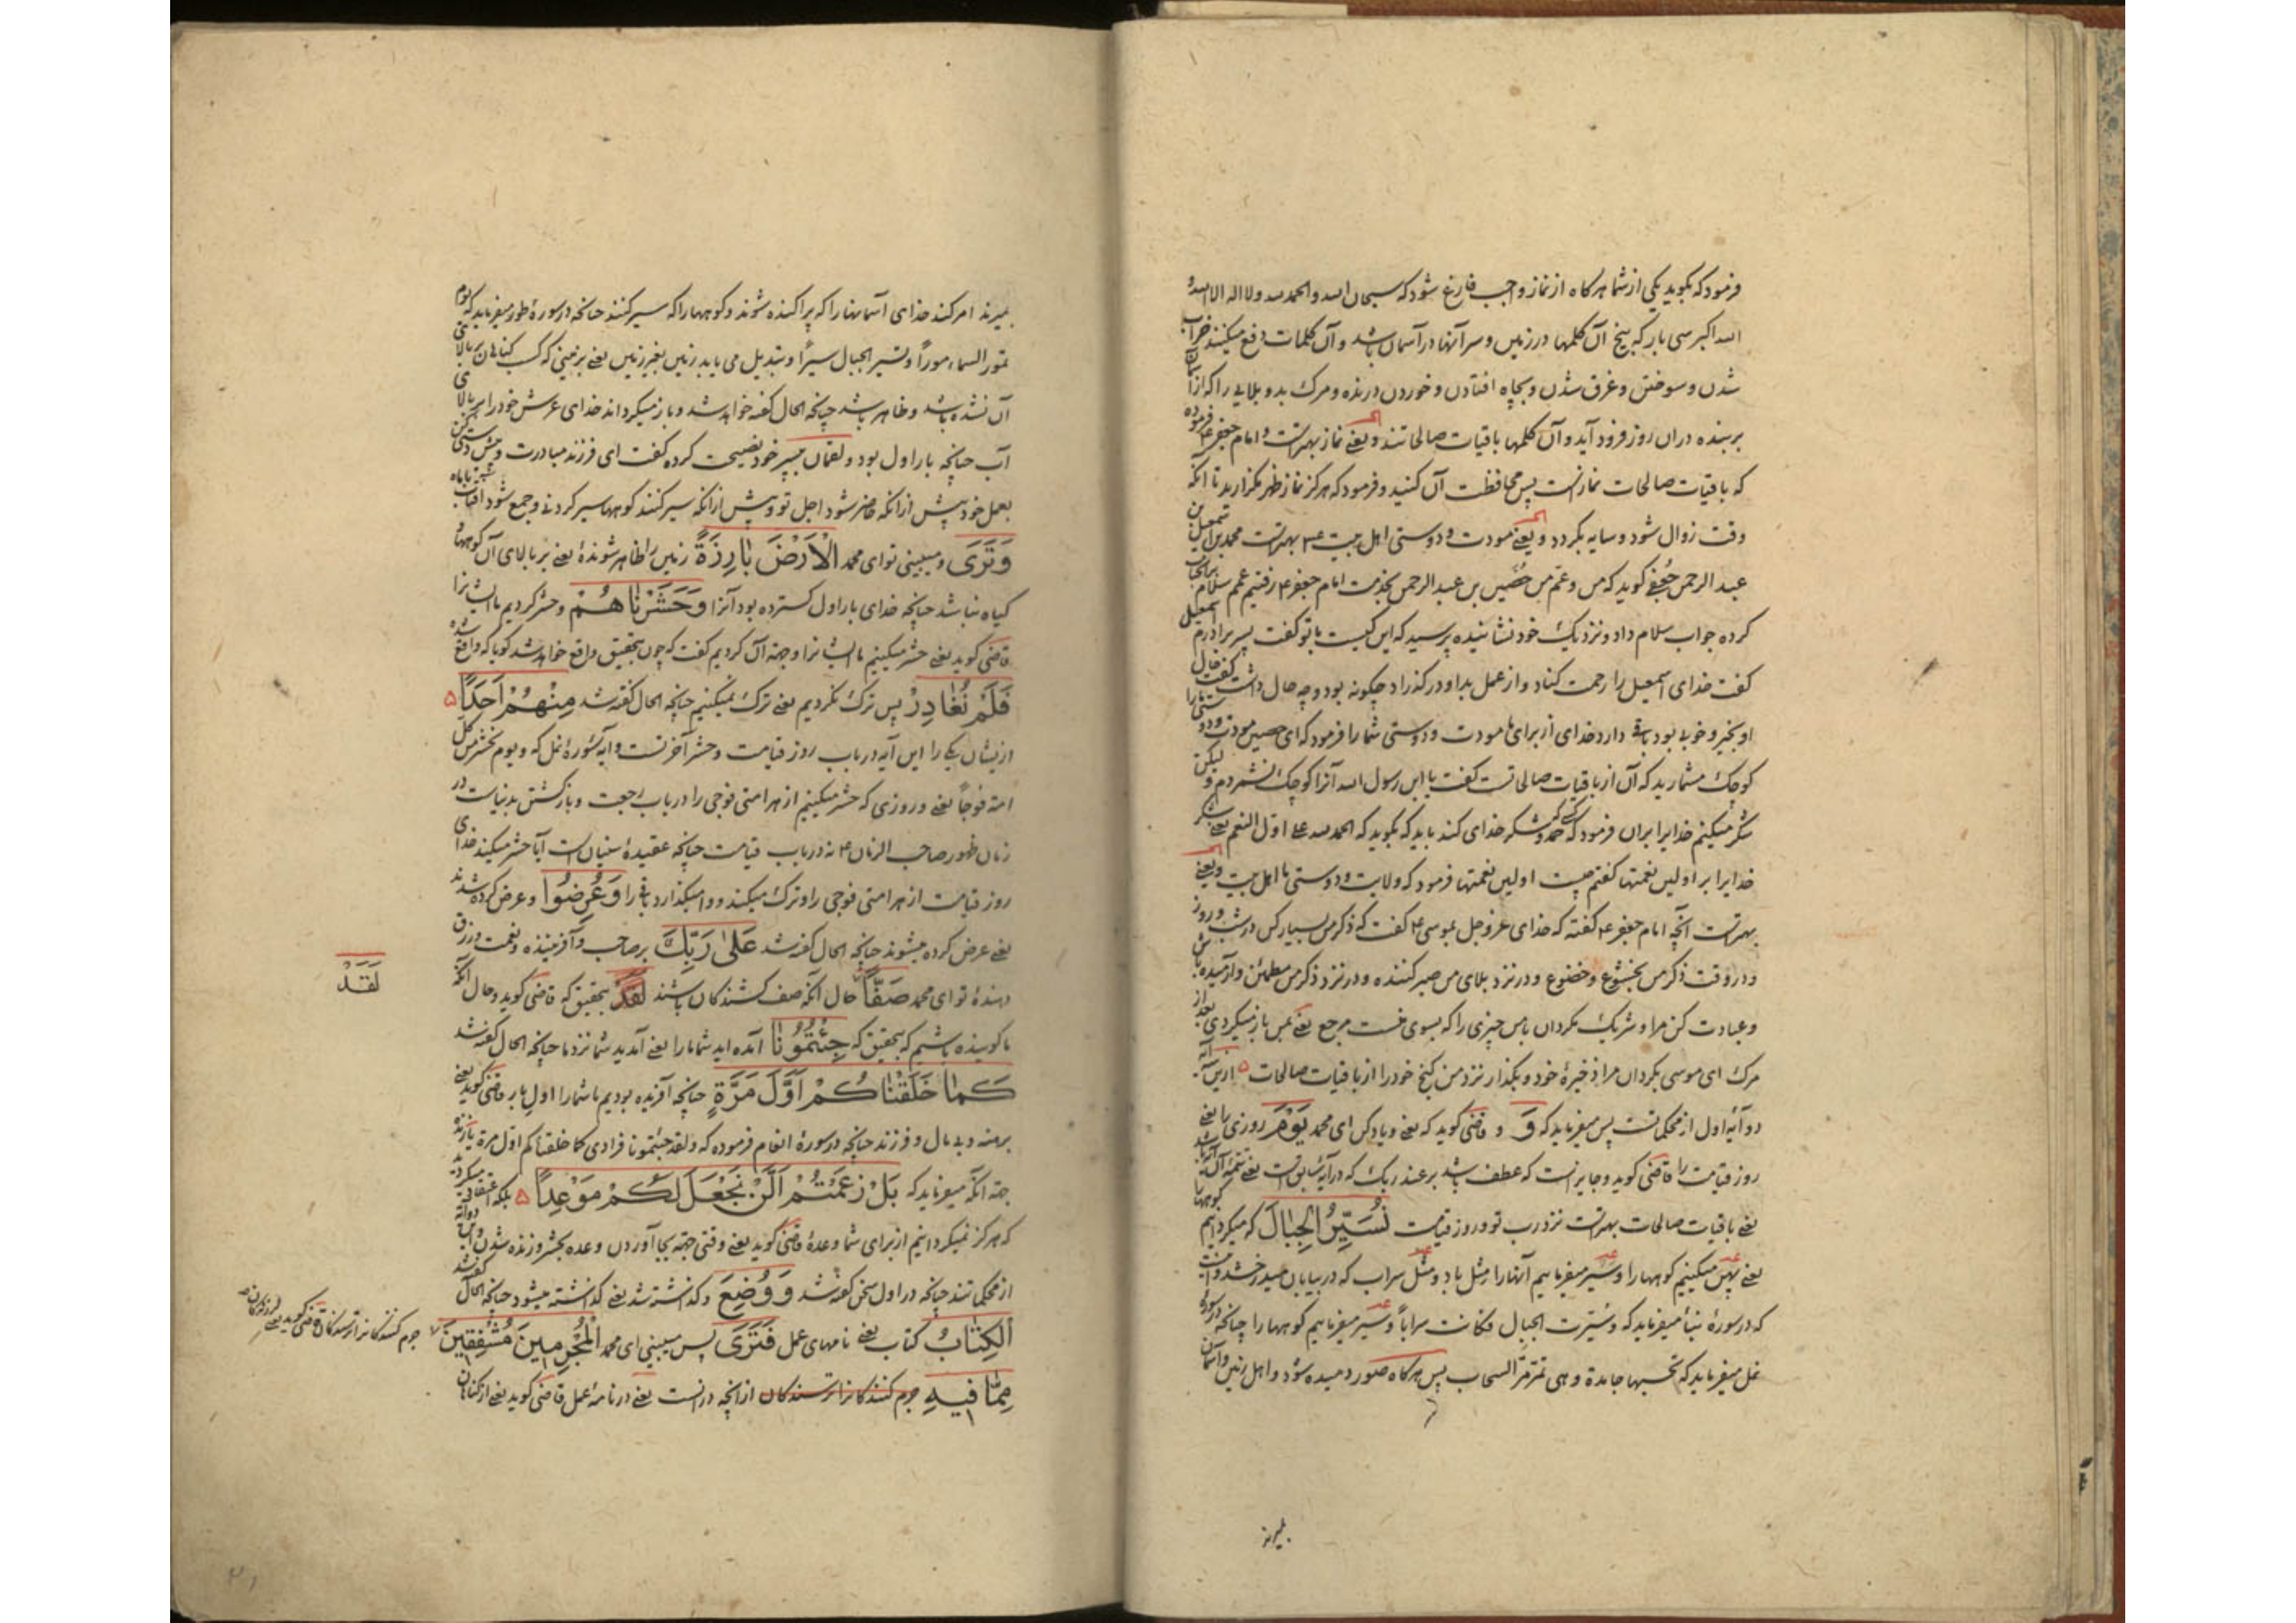 فرمود که بگوید یکی از شما هرکاه از نماز واجب فارغ شود که سبحان الله والحمد لله ولا اله الا الله و
الله اکبر سی بار که بیخ آن کلمها در زمین و سر آنها در آسمان باشد و آن کلمات دفع میکنند خراب
شدن و سوختن و غرق شدن و بچاه افتادن و خوردن درنده و مرک بد و بلایی را که از آسمان
بر بنده دران روز فرود آید و آن کلمها باقیات صالحاتند و یعنی نماز بهترست و امام جعفر ع فرموده
که باقیات صالحات نمازست پس محافظت آن کنید و فرمود که هرکز نماز ظهر نکزارید تا آنکه
وقت زوال شود و سایه بکردد و یعنی مودت و دوستی اهل بیت ع م بهترست محمد بن اسمعیل بن
عبد الرحمن جعفی کوید که من و عمم حصین بن عبد الرحمن بخدمت امام جعفر ع رفتیم عمم سلام
کرده جواب سلام داد و نزدیک خود نشانیده پرسید که این کیست با تو کفت پسر برادرم اسمعیل
کفت خدای اسمعیل را رحمت کناد و از عمل بد او در کذراد چکونه بود و چه حال داشت کفت حال
او بخیر و خوبی بود باقی دارد خدای از برای ما مودت و دوستی شما را فرمود که ای حصین مودت و دوستی ما را
کوچک مشمارید که آن از باقیات صالحاتست کفت یا ابن رسول الله آنرا کوچک نشمردم و لیکن
شکر میکنم خدایرا بران فرمود که کسی که حمد و شکر خدای کند باید که بکوید که الحمد لله علی اول النعم یعنی شکر
خدایرا بر اولین نعمتها کفتم چیست اولین نعمتها فرمود که ولایت و دوستی ما اهل بیت و یعنی
بهترست آنچه امام جعفر ع کفته که خدای عز و جل بموسی ع کفت که ذکر من بسیار کن در شب و روز
و در وقت ذکر من بخشوع و خضوع و در نزد بلای من صبر کننده و در نزد ذکر من مطمئن و آرمیده باش
و عبادت کن مرا و شریک مکردان با من چیزی را که بسوی منست مرجع یعنی بمن باز میکردی بعد از
مرک ای موسی بکردان مرا ذخیرهٔ خود و بکذار نزد من کنج خود را از باقیات صالحات ۵ ازین آیه
دو آیهٔ اول از محکماتست پس میفرماید که وَ و قاضی کوید که یعنی و یاد کن ای محمد یَوْمَ روزی را یعنی
روز قیامت را قاضی کوید و جایزست که عطف باشد بر عند ربک که در آیهٔ سابق است یعنی تتمهٔ آن
یعنی باقیات صالحات بهترست نزد رب تو و روز قیامت نُسَیِّرُ الْجِبَالَ که میکردانیم کوهها
یعنی پهن میکنیم کوهها را و سیر میفرماییم آنها را مثل باد و مثل سراب که در بیابان میدرخشد
که در سورهٔ نبأ میفرماید که و سیرت الجبال فکانت سرابا و سیر میفرماییم کوهها را چنانکه در سورهٔ
نمل میفرماید که تحسبها جامدة و هی تمر مر السحاب پس هرکاه صور دمیده شود و اهل زمین و آسمان
بمیرند
بمیرند امر کند خدای آسمانها را که پراکنده شوند و کوهها را که سیر کنند چنانچه در سورهٔ طور میفرماید که یوم
تمور السماء مورا و تسیر الجبال سیرا و تبدیل می یابد زمین بغیر زمین یعنی بزمینی که کسب کناهان بر بالای
آن نشده باشد و ظاهر باشد چنانچه الحال کفته خواهد شد و باز میکرداند خدای عرش خود را بر بالای
آب چنانچه بار اول بود و لقمان بپسر خود نصیحت کرده کفت ای فرزند مبادرت و پیش دستی کن
بعمل خود پیش ازانکه حاضر شود اجل تو و پیش ازانکه سیر کنند کوهها سیر کردنی و جمع شود آفتاب با ماه
وَتَرَی و میبینی تو ای محمد الْاَرْضَ بَارِزَةً زمین را ظاهر شوندهٔ یعنی بر بالای آن کوهها و
کیاه نباشد چنانچه خدای بار اول کسترده بود آنرا وَحَشَرْنَاهُمْ و حشر کردیم ما ایشانرا
قاضی کوید یعنی حشر میکنیم ما ایشانرا و جهة آن کردیم کفت که چون بتحقیق واقع خواهد شد کویا که واقع شده
فَلَمْ نُغَادِرْ پس ترک نکردیم یعنی ترک نمیکنیم چنانچه الحال کفته شد مِنْهُمْ اَحَدًا ۵
ازیشان یکی را این آیه در باب روز قیامت و حشر آخرتست و آیهٔ سورهٔ نمل که و یوم نحشر من کل
امة فوجا یعنی و روزی که حشر میکنیم از هر امتی فوجی را در باب رجعت و بازکشتن بدنیاست در
زمان ظهور صاحب الزمان ع نه در باب قیامت چنانچه عقیدهٔ سنیان است آیا حشر میکند خدای
روز قیامت از هر امتی فوجی را و ترک میکند و وا میکذارد باقی را وَعُرِضُوا و عرض کرده شدند
یعنی عرض کرده میشوند چنانچه الحال کفته شد عَلَی رَبِّکَ بر صاحب و آفریننده و نعمت و رزق
دهندهٔ تو ای محمد صَفًّا حال آنکه صف کشندکان باشند لَقَدْ بتحقیق که قاضی کوید و حال آنکه
لَقَدْ
ما کوینده باشیم که بتحقیق که جِئْتُمُونَا آمده اید شما ما را یعنی آمدید شما نزد ما چنانچه الحال کفته شد
کَمَا خَلَقْنَاکُمْ اَوَّلَ مَرَّةٍ چنانچه آفریده بودیم ما شما را اول بار قاضی کوید یعنی
برهنه و بی مال و فرزند چنانچه در سورهٔ انعام فرموده که و لقد جئتمونا فرادی کما خلقناکم اول مرة
جهة آنکه میفرماید که بَلْ زَعَمْتُمْ اَلَّنْ نَجْعَلَ لَکُمْ مَوْعِدًا ۵ بلکه اعتقاد میکردید
که هرکز نمیکردانیم از برای شما وعدهٔ قاضی کوید یعنی وقتی جهة بجا آوردن وعده بحشر و زنده شدن
از محکماتند چنانچه در اول سخن کفته شد وَوُضِعَ و کذاشته شد یعنی کذاشته میشود چنانچه الحال کفته شد
اَلْکِتَابُ کتاب یعنی نامهای عمل فَتَرَی پس میبینی ای محمد الْمُجْرِمِینَ مُشْفِقِینَ
جرم کنندکانرا ترسندکان قاضی کوید یعنی
مِمَّا فِیهِ جرم کنندکانرا ترسندکان ازانچه درانست یعنی در نامهٔ عمل قاضی کوید یعنی از کناهان